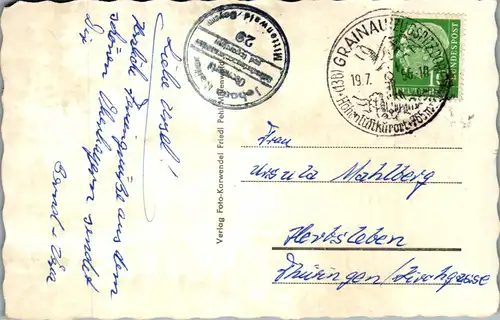 Liebe Ursel!
Herzliche Feriengrüße aus dem
schönen Oberbayern sendet
Dir
Bernd -
Verlag Foto-Karwendel Friedl
Mittenwald/Bayern
29
(13b) GRAINAU
19.7. 56-18
Höhenluftkurort
DEUTSCHE BUNDESPOST
10
Frau
Ursula Mahlberg
Herbsleben
Thüringen/Kirchgasse